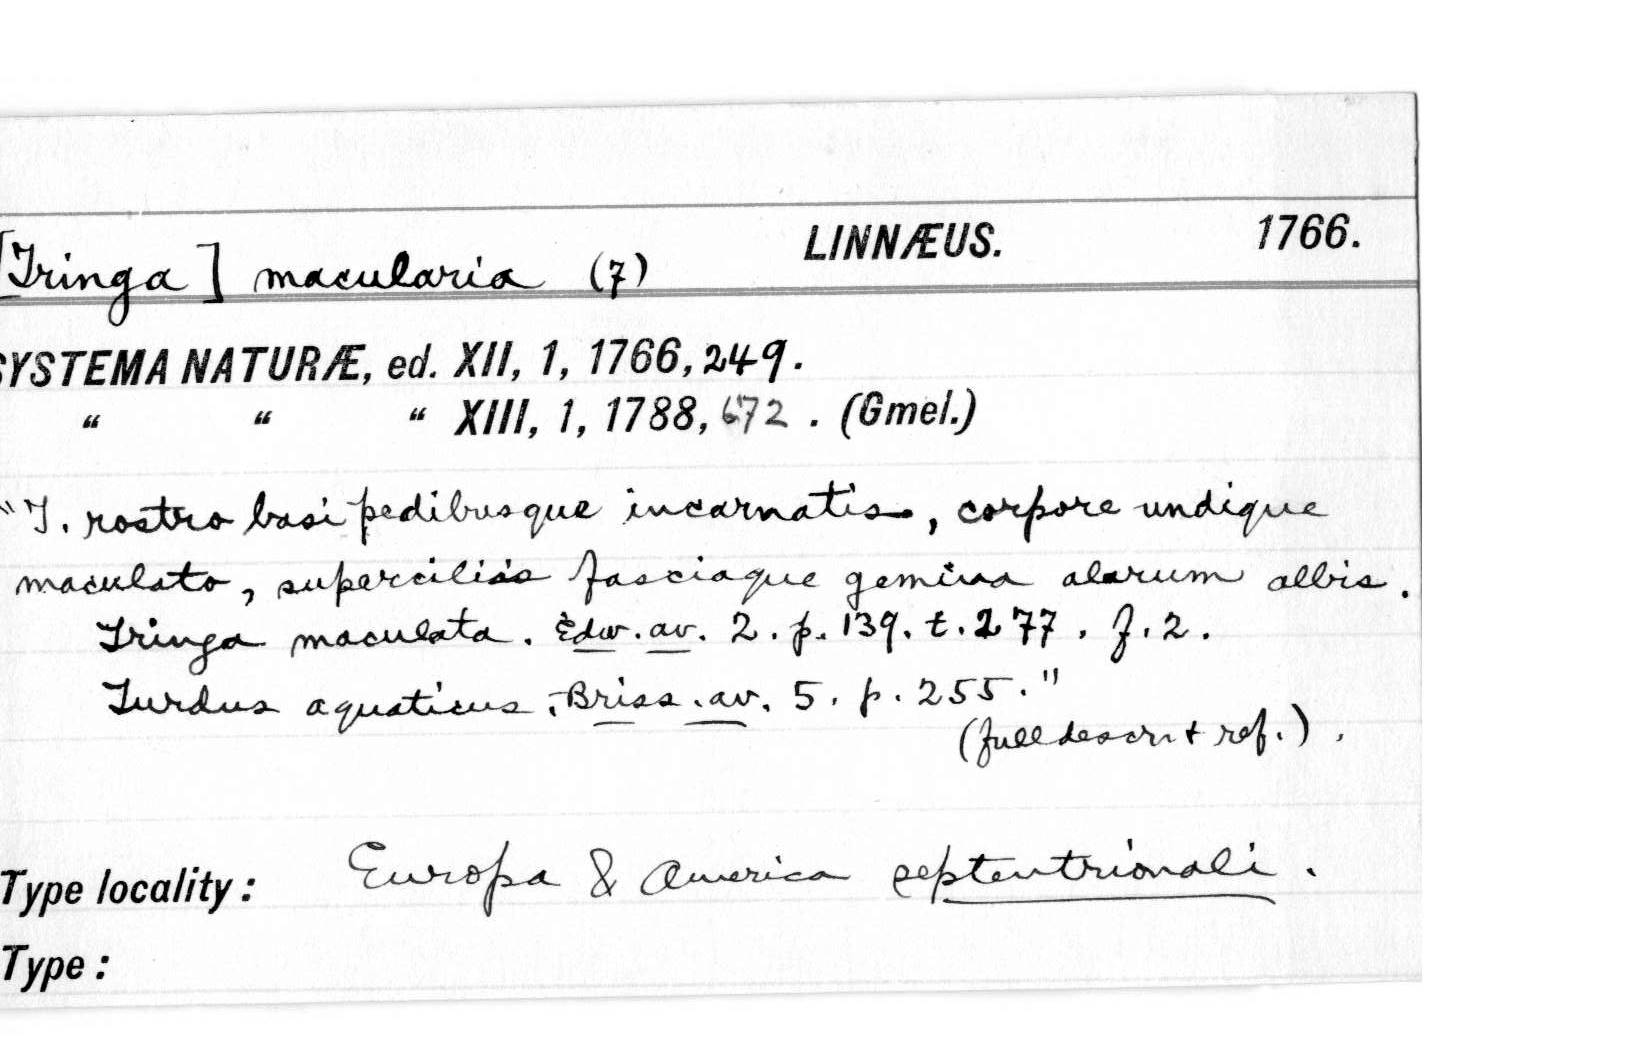 [Tringa] macularia (7) LINNÆUS. 1766.
SYSTEMA NATURÆ, ed. XII, 1, 1766, 249.
" " " XIII, 1, 1788, 672. (Gmel.)
"T. rostro basi pedibusque incarnatis, corpore undique
maculato, superciliis fasciaque gemina alarum albis.
Tringa maculata. Edw. av. 2. p. 139. t. 277. f. 2.
Turdus aquaticus. Briss. av. 5. p. 255."
(full descr. + ref.).
Type locality: Europa & America septentrionali.
Type: